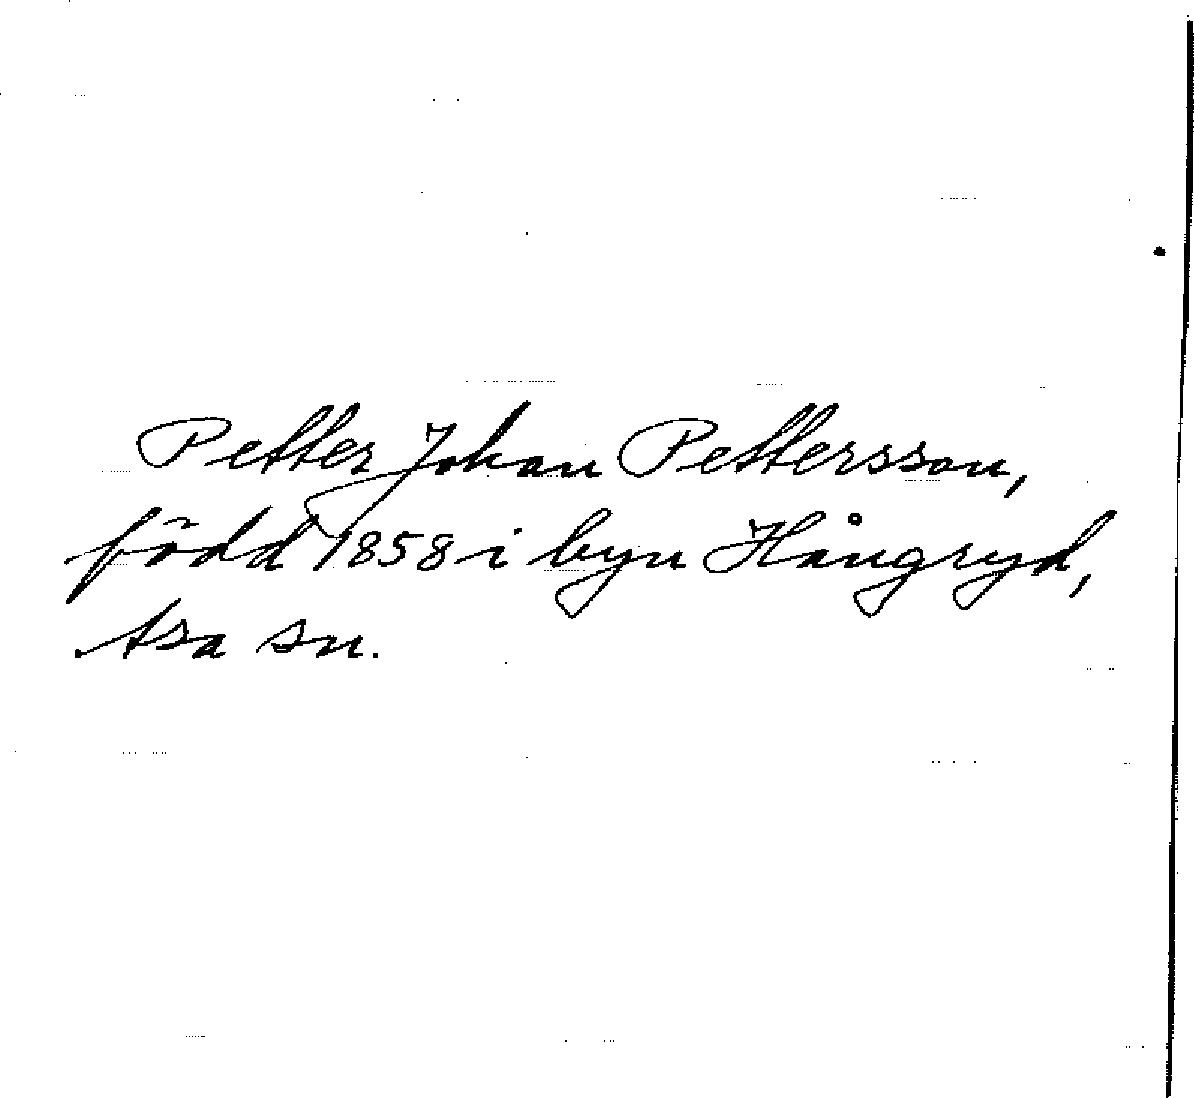 Petter Johan Pettersson,
född 1858 i byn Hångryd,
Asa sn.